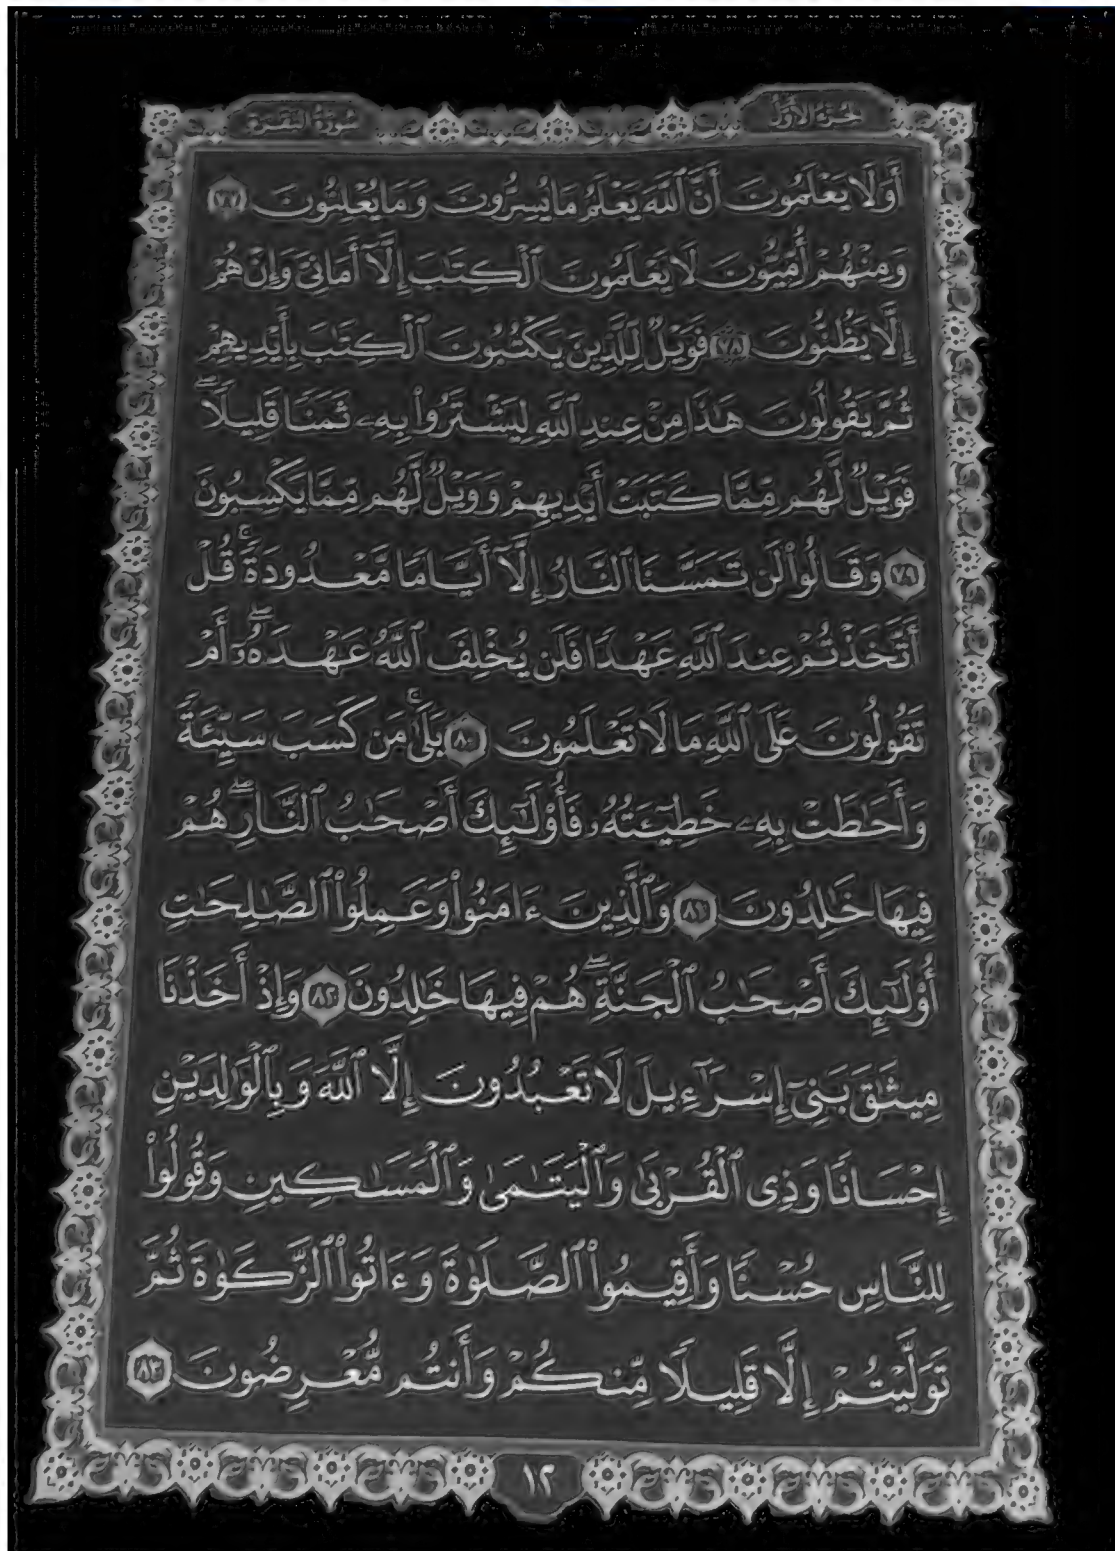 الجزء الأول
سورة البقرة
أَوَلَا يَعْلَمُونَ أَنَّ ٱللَّهَ يَعْلَمُ مَا يُسِرُّونَ وَمَا يُعْلِنُونَ ﴿٧٧﴾
وَمِنْهُمْ أُمِّيُّونَ لَا يَعْلَمُونَ ٱلْكِتَٰبَ إِلَّآ أَمَانِىَّ وَإِنْ هُمْ
إِلَّا يَظُنُّونَ ﴿٧٨﴾ فَوَيْلٌ لِّلَّذِينَ يَكْتُبُونَ ٱلْكِتَٰبَ بِأَيْدِيهِمْ
ثُمَّ يَقُولُونَ هَٰذَا مِنْ عِندِ ٱللَّهِ لِيَشْتَرُوا۟ بِهِۦ ثَمَنًا قَلِيلًا ۖ
فَوَيْلٌ لَّهُم مِّمَّا كَتَبَتْ أَيْدِيهِمْ وَوَيْلٌ لَّهُم مِّمَّا يَكْسِبُونَ
﴿٧٩﴾ وَقَالُوا۟ لَن تَمَسَّنَا ٱلنَّارُ إِلَّآ أَيَّامًا مَّعْدُودَةً ۚ قُلْ
أَتَّخَذْتُمْ عِندَ ٱللَّهِ عَهْدًا فَلَن يُخْلِفَ ٱللَّهُ عَهْدَهُۥٓ ۖ أَمْ
تَقُولُونَ عَلَى ٱللَّهِ مَا لَا تَعْلَمُونَ ﴿٨٠﴾ بَلَىٰ ۚ مَن كَسَبَ سَيِّئَةً
وَأَحَٰطَتْ بِهِۦ خَطِيٓـَٔتُهُۥ فَأُو۟لَٰٓئِكَ أَصْحَٰبُ ٱلنَّارِ ۖ هُمْ
فِيهَا خَٰلِدُونَ ﴿٨١﴾ وَٱلَّذِينَ ءَامَنُوا۟ وَعَمِلُوا۟ ٱلصَّٰلِحَٰتِ
أُو۟لَٰٓئِكَ أَصْحَٰبُ ٱلْجَنَّةِ ۖ هُمْ فِيهَا خَٰلِدُونَ ﴿٨٢﴾ وَإِذْ أَخَذْنَا
مِيثَٰقَ بَنِىٓ إِسْرَٰٓءِيلَ لَا تَعْبُدُونَ إِلَّا ٱللَّهَ وَبِٱلْوَٰلِدَيْنِ
إِحْسَانًا وَذِى ٱلْقُرْبَىٰ وَٱلْيَتَٰمَىٰ وَٱلْمَسَٰكِينِ وَقُولُوا۟
لِلنَّاسِ حُسْنًا وَأَقِيمُوا۟ ٱلصَّلَوٰةَ وَءَاتُوا۟ ٱلزَّكَوٰةَ ثُمَّ
تَوَلَّيْتُمْ إِلَّا قَلِيلًا مِّنكُمْ وَأَنتُم مُّعْرِضُونَ ﴿٨٣﴾
١٢